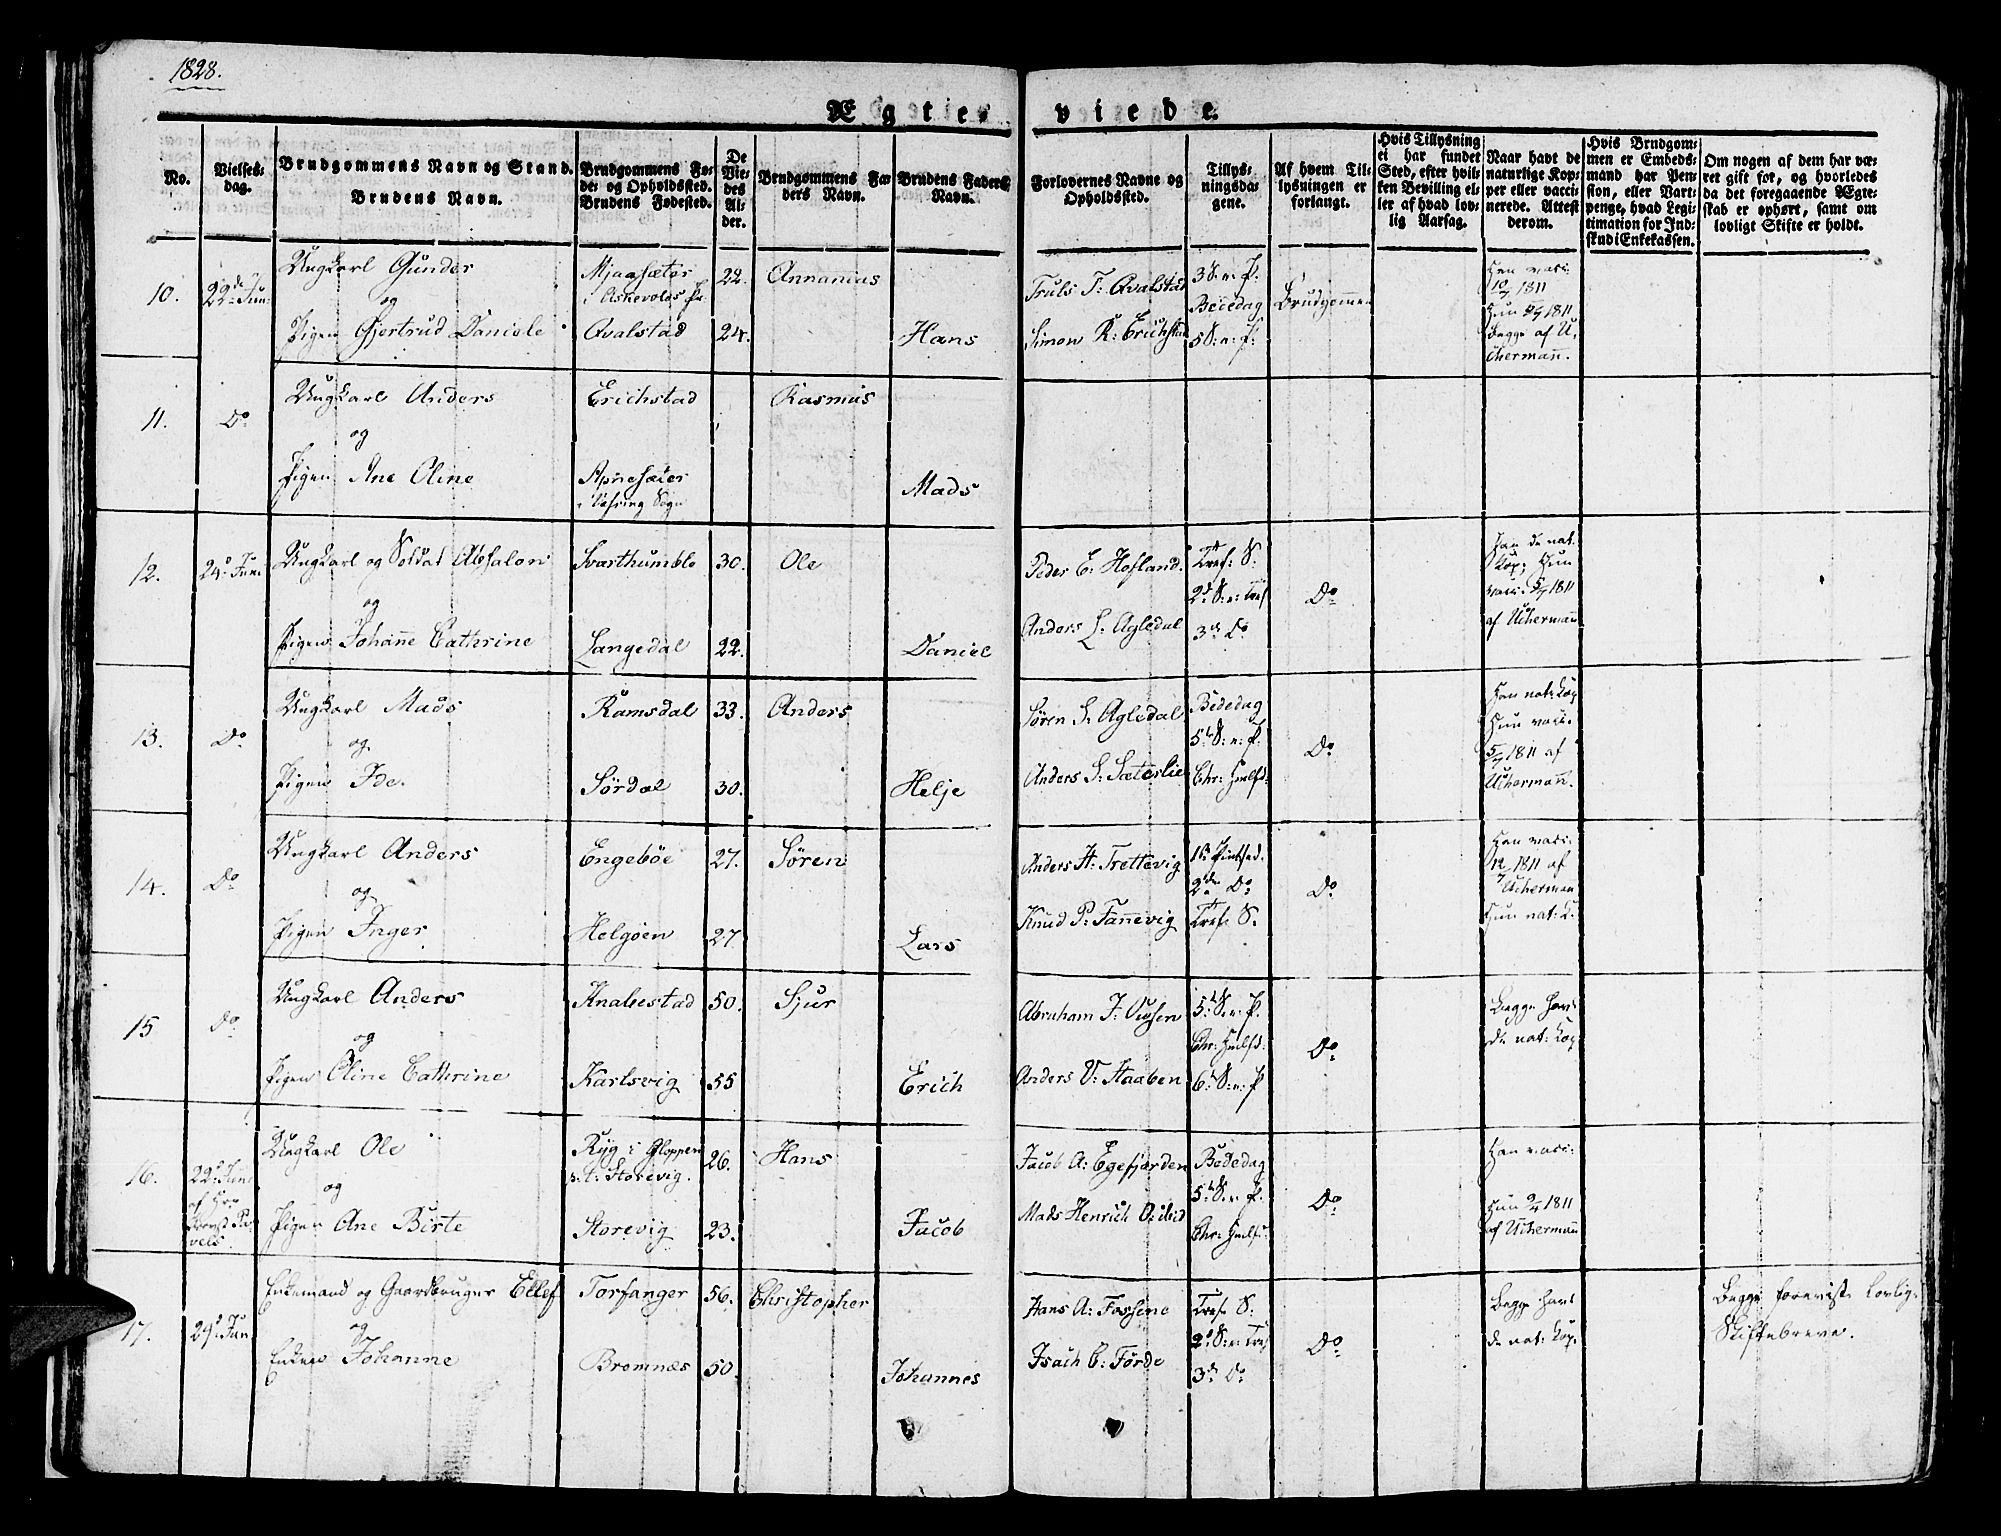 1828.
Ægteviede.
No.
Vielses-
dag.
Brudgommens Navn og Stand.
Brudens Navn.
Brudgommens Fø-
de- og Opholdssted.
Brudens Fødested.
De
Vie-
des
Al-
der.
Brudgommens Fa-
ders Navn.
Brudens Faders
Navn.
Forlovernes Navne og
Opholdssted.
Tillys-
ningsda-
gene.
Af hvem Til-
lysningen er
forlangt.
Hvis Tillysning
ei har fundet
Sted, efter hvil-
ken Bevilling el-
ler af hvad lov-
lig Aarsag.
Naar havt de
naturlige Kop-
per eller vacci-
nerede. Attest
derom.
Hvis Brudgom-
men er Embeds-
mand har Pen-
sion, eller Vart-
penge, hvad Legi-
timation for Ind-
skud i Enkekassen.
Om nogen af dem har væ-
ret gift før, og hvorledes
da det foregaaende Ægte-
skab er ophørt, samt om
lovligt Skifte er holdt.
10.
22de Jun:
Ungkarl Gunder
og
Pigen Gjertrud Daniele
Mjaasæter
i Askevolds Pr:
Qvalstad
22.
24.
Annanias
Hans
Truls T: Qvalstad
Simon R: Erichstad
3 S. n. P.
Bededag
5 S: n: P:
Brudgommen
Han vacc:
10/7 1811
Hun 5/7 1811
Begge af U-
chermañ.
11.
Do
Ungkarl Anders
og
Pigen Ane Oline
Erichstad
Espesæter
i Vefring Sogn
Rasmus
Mads
12.
24d Jun:
Ungkarl og Soldat Absalon
og
Pigen Johañe Cathrine
Svarthumble
Langedal
30.
22.
Ole
Daniel
Peder E: Hofland.
Anders L: Agledal
Tref: S.
2d S: n: Tref
3di Do
Do
Han de nat.
Kop: Hun
vacc: 5/7 1811
af Uchermañ
13.
Do
Ungkarl Mads
og
Pigen Ide.
Ramsdal
Sørdal
33.
30.
Anders
Helje
Søren S: Agledal
Anders S: Sæterlie
Bededag
5t S. n: P.
Chr: Hmlfd:
Do
Han nat: Kop
Hun vacc.
5/7 1811 af
Uchermañ.
14.
Do
Ungkarl Anders
og
Pigen Inger
Engebøe
Helgøen
27.
27
Søren
Lars
Anders H: Trettevig
Knud P: Tañevig
1st Pintsed.
2den Do
Tref. S.
Do
Han vacc:
12/7 1811 af
Uchermañ
Hun nat: K.
15
Do
Ungkarl Anders
og
Pigen Oline Cathrine
Knabestad
Karlsvig
50.
55
Sjur
Erich
Abraham J: Vassen
Anders V: Staaben
5t S. n. P.
Chr: Hmlfd:
6t S: n: P
Do
Begge hav-
de nat: Kop
16.
22d Jun:
af Hr.
Provst Pa-
vels.
Ungkarl Ole
og
Pigen Ane Birte
Ryg i Gloppen
p. t. Storevig.
Storevig
26.
23.
Hans
Jacob
Jacob A: Egefjorden
Mads Henrich
Bededag
5t S. n. P.
Chr: Hmlfd:
Do
Han vacc:
Hun 9/4 1811
af Uchermañ
17.
24d Jun
Enkemand og Gaardbruger Ellef
og
Enken Johanne
Torfanger
Bromnæs
56.
50.
Christopher
Johannes
Hans A: Fossene
Isach C: Førde
Tref. S.
2d S. n: Tref
3di Do
Do
Begge hav-
de nat: Kop.
Begge foreviste lovlig.
Skiftebreve.